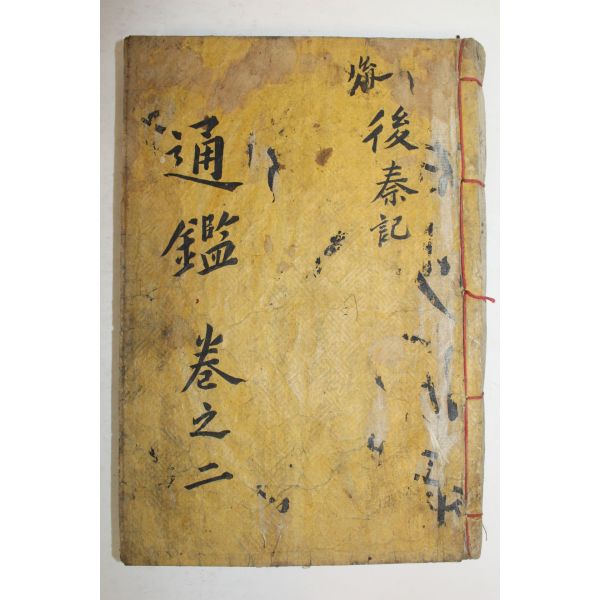 後秦記
通鑑 卷之二